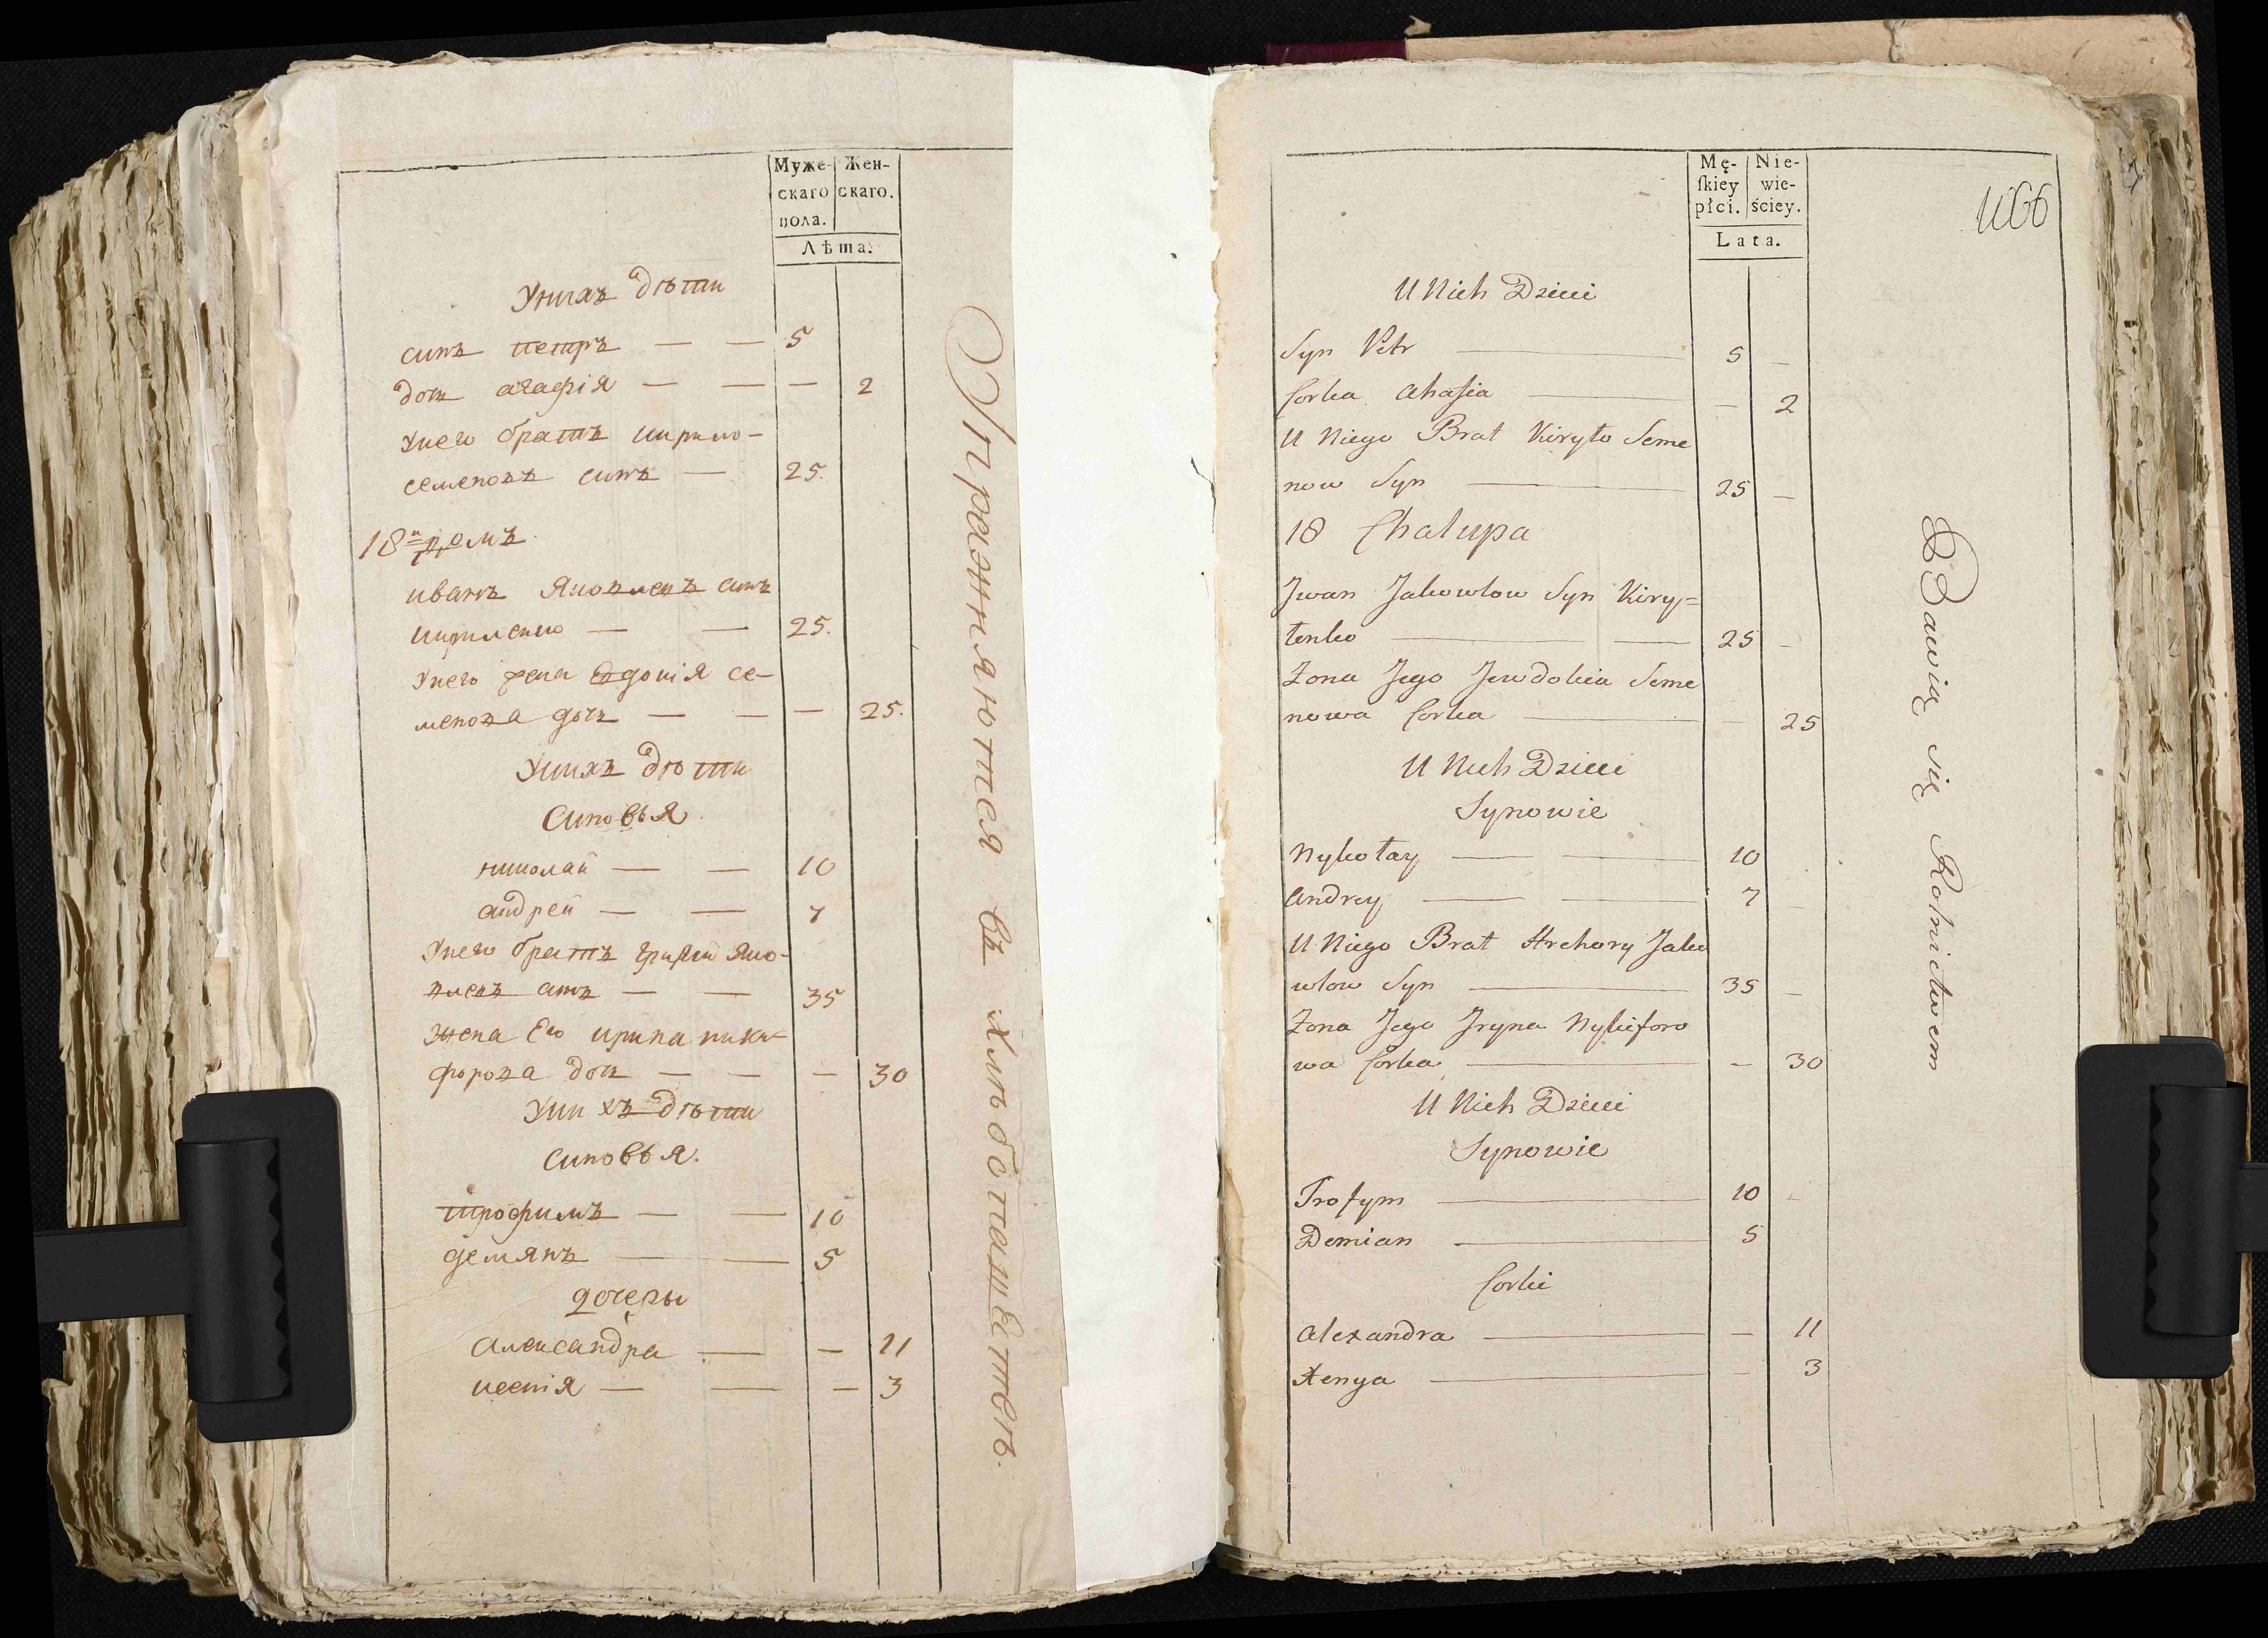 Муже- Жен-
скаго скаго.
пола.
Лѣта.
Унихъ дѣти
синъ петръ — — 5
доч агафія — — — 2
Унего братъ кирило-
семеновъ синъ — 25.
18й домъ
иванъ Яковлевъ синъ
кириленко — — 25.
Унего жена Евдокія се-
менова дочъ — — — 25.
Унихъ дѣти
синовья.
николай — — 10
андрей — — 7
Унего братъ григорій Яко-
влевъ синъ — — 35
жена Его ирина ники-
форова доч — — — 30
Унихъ дѣти
синовья.
трофимъ — — 10
демянъ — — 5
дочеры
александра — — 11
ксенія — — — 3
Упражняются въ хлѣбопашествѣ.
Mę- Nie-
skiey wie-
płci. ściey.
Lata.
1166
U Nich Dzieci
Syn Petr — 5 —
Corka Ahafia — — 2
U Niego Brat Kiryło Seme
now Syn — 25 —
18 Chalupa
Iwan Jakowlow Syn Kiry=
łenko — — 25 —
Zona Jego Jewdokia Seme
nowa Corka — — 25
U Nich Dzieci
Synowie
Nykołay — — 10
Andrey — — 7 —
U Niego Brat Hrehory Jako
wlow Syn — 35 —
Zona Jego Iryna Nykiforo
wa Corka — — 30
U Nich Dzieci
Synowie
Trofym — 10 —
Demian — 5
Corki
Alexandra — — 11
Xenya — — 3
Bawią się Rolnictwem